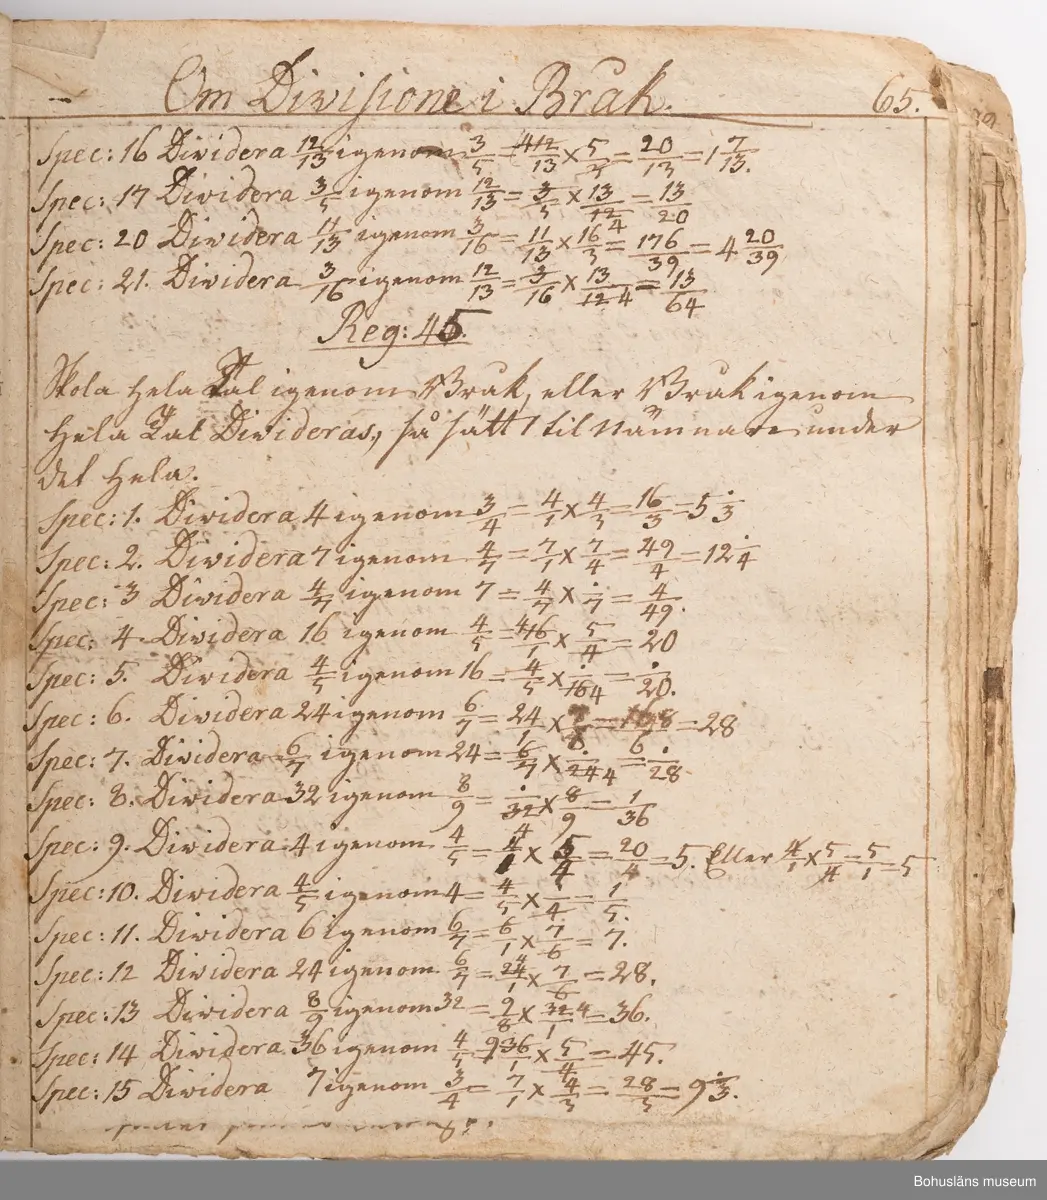 Om Divisione i Bråk. 65.
Spec: 16 Dividera 12/13 igenom 3/5 = 412/13 × 5/3 = 20/13 = 1 7/13.
Spec: 17 Dividera 3/5 igenom 12/13 = 3/5 × 13/12 4 = 13/20
Spec: 20 Dividera 11/13 igenom 3/16 = 11/13 × 16/3 = 176/39 = 4 20/39
Spec: 21. Dividera 3/16 igenom 12/13 = 3/16 × 13/12 4 = 13/64
Reg: 45.
Skola hela Tal igenom Bråk, eller Bråk igenom
hela Tal Divideras, så sätt 1 til Nämnare under
det hela.
Spec: 1. Dividera 4 igenom 3/4 = 4/1 × 4/3 = 16/3 = 5 ./3
Spec: 2. Dividera 7 igenom 4/7 = 7/1 × 7/4 = 49/4 = 12 ./4
Spec: 3 Dividera 4/7 igenom 7 = 4/7 × ./7 = 4/49.
Spec: 4. Dividera 16 igenom 4/5 = 416/1 × 5/4 = 20
Spec: 5. Dividera 4/5 igenom 16 = 4/5 × ./16 4 = ./20.
Spec: 6. Dividera 24 igenom 6/7 = 24/1 × 7/6 = 168/6 = 28
Spec: 7. Dividera 6/7 igenom 24 = 6/7 × ./24 4 = ./28.
Spec: 8. Dividera 32 igenom 8/9 = ./32 4 × 8/9 = 1/36
Spec: 9. Dividera 4 igenom 4/5 = 4/1 × 5/4 = 20/4 = 5. Eller 4/1 × 5/4 = 5/1 = 5
Spec: 10. Dividera 4/5 igenom 4 = 4/5 × 1/4 = 1/5.
Spec: 11. Dividera 6 igenom 6/7 = 6/1 × 7/6 = 7.
Spec: 12 Dividera 24 igenom 6/7 = 24 4/1 × 7/6 = 28.
Spec: 13 Dividera 8/9 igenom 32 = 9/8 × 32 4/1 = 36.
Spec: 14 Dividera 36 igenom 4/5 = 936/1 × 5/4 = 45.
Spec: 15 Dividera 7 igenom 3/4 = 7/1 × 4/3 = 28/3 = 9 ./3.
Bohusläns museum